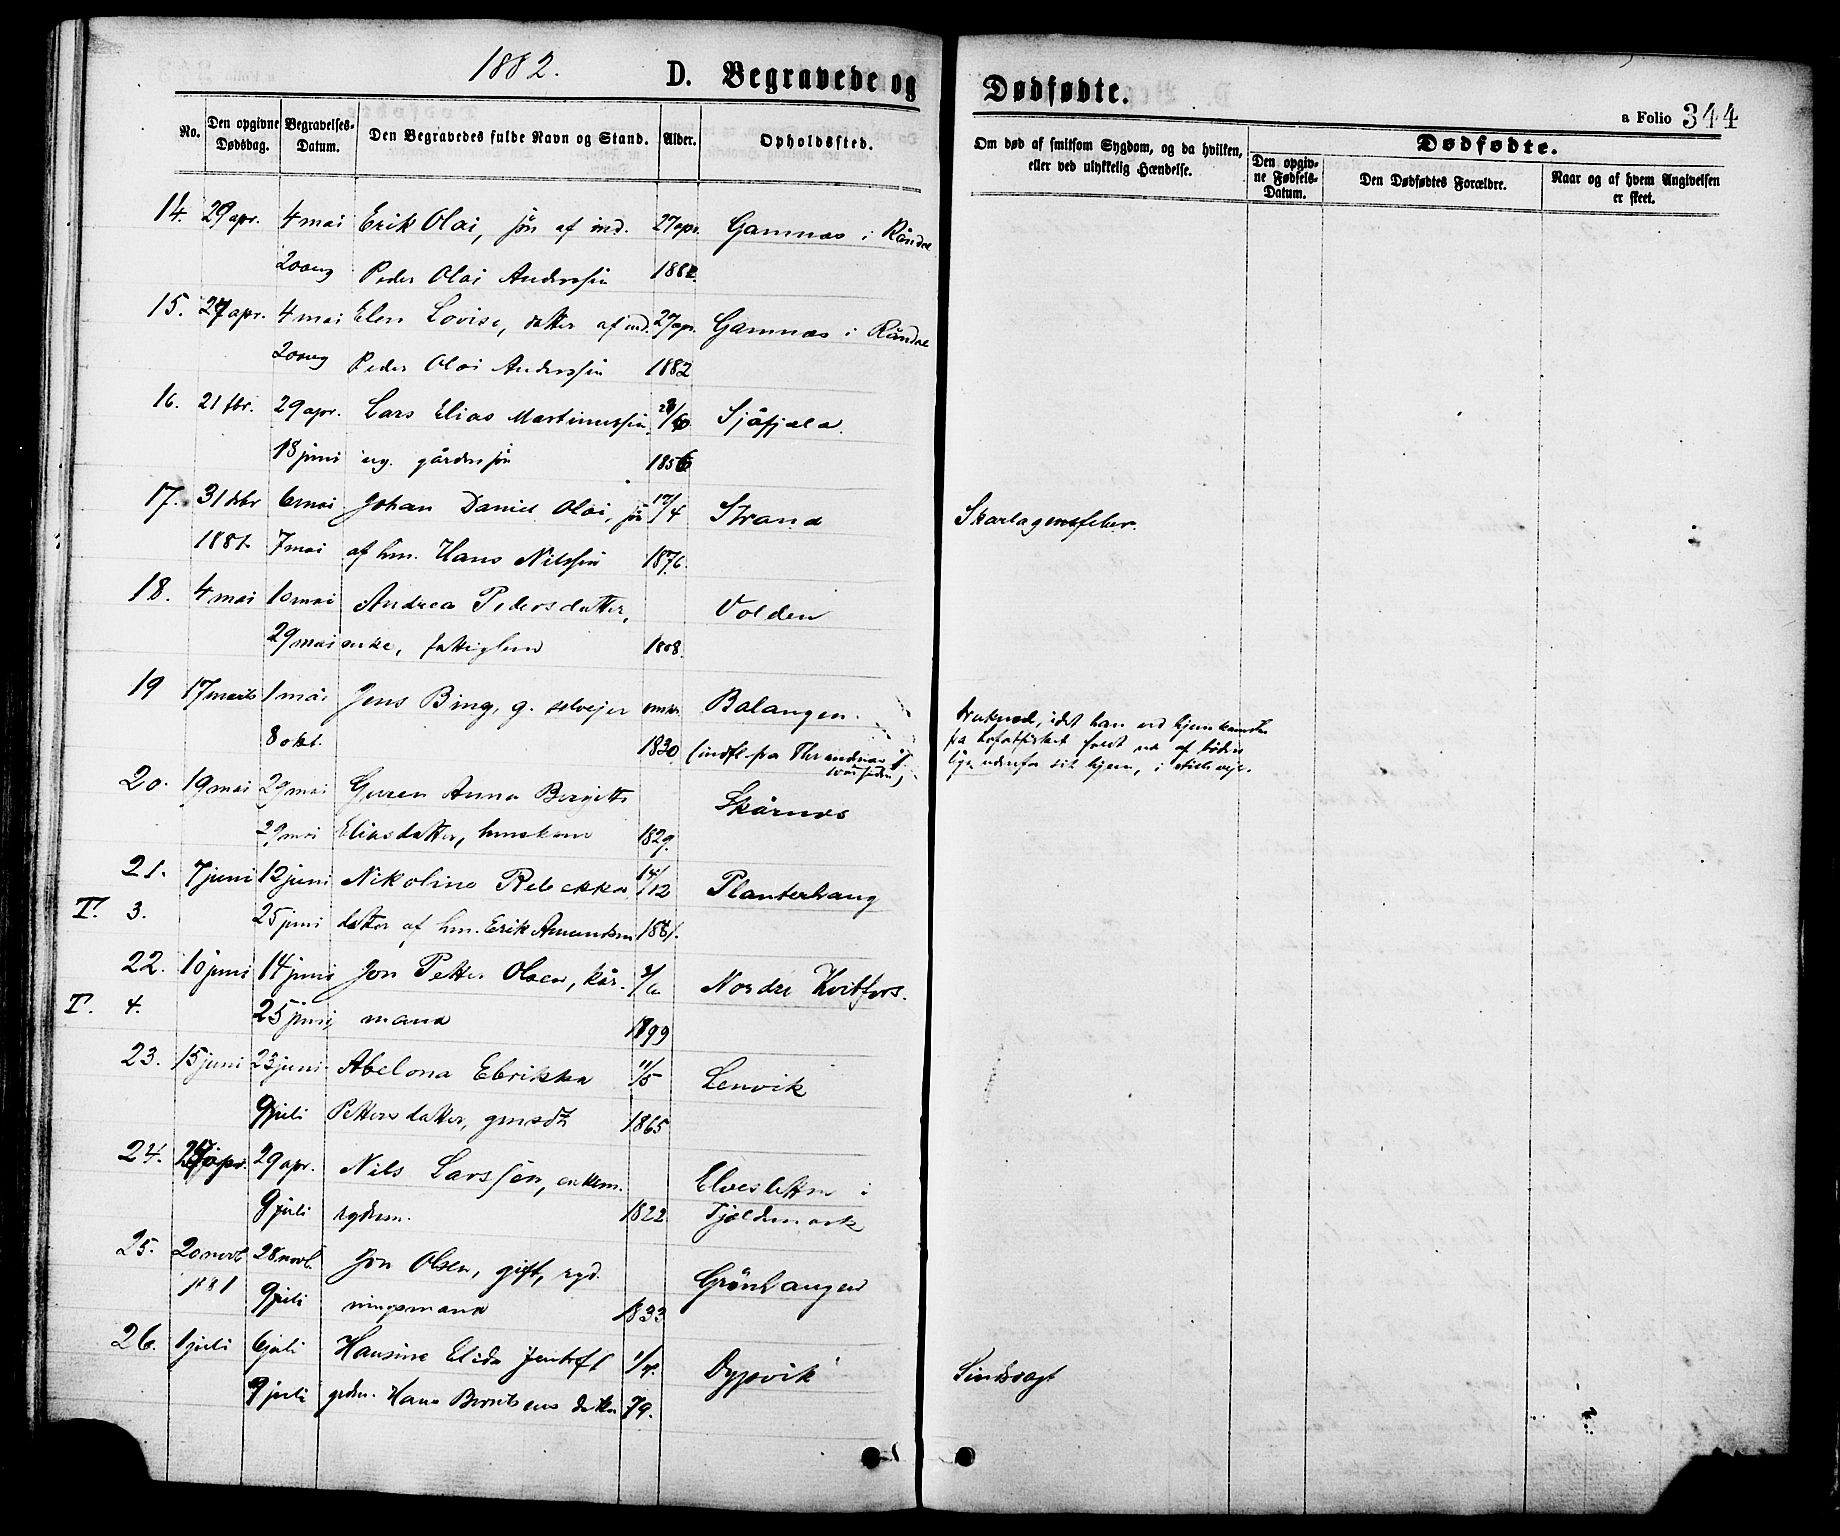 1882.
D. Begravede og Dødfødte.
a Folio 344
No.
Den opgivne Dødsdag.
Begravelses-Datum.
Den Begravedes fulde Navn og Stand.
Alder.
Opholdssted.
Om død af smitsom Sygdom, og da hvilken, eller ved ulykkelig Hændelse.
Dødfødte.
Den opgivne Fødsels-Datum.
Den Dødfødtes Forældre.
Naar og af hvem Angivelsen er skeet.
14. 29 apr. 4 mai Erik Olai, søn af ind. 27 apr. Gamnæs i Rånda
20 aug Peder Olai Anderssøn 1882.
15. 27 apr. 4 mai Elen Lovise, datter af ind. 27 apr. Gamnæs i Rånda
20 aug Peder Olai Anderssøn 1882
16. 21 fbr. 29 apr. Lars Elias Martinussøn, Sjåfjæla.
18 juni ug. gårdmssøn 1856
17. 31 dbr 6 mai Johan Daniel Olai, søn 17/4 Strand Skarlagensfeber.
1881. 7 mai af hm. Hans Nilssøn 1876.
18. 4 mai 10 mai Andrea Pedersdatter, Volden
29 mai enke, fattiglem 1808.
19 17 marts 1 mai Jens Bing, g. selvejer omkr. Balangen. druknede, idet han ved hjemkomsten
8 okt. 1830 (indfl. fra Throndnæs fra Lofotfisket faldt ud af båden
lige udenfor sit hjem, i
20. 19 mai 29 mai Guren Anna Bergitte Skårnæs
29 mai Eliasdatter, huuskone 1829.
21. 7 juni 12 juni Nikoline Rebekka 14/12 Planterhaug
T. 3. 25 juni datter af hm. Erik Amundsen 1881.
22. 10 juni 14 juni Jon Petter Olsen, kår- Nordre Kvitfors.
T. 4. 25 juni mand 1799
23. 15 juni 23 juni Abelona Ebrikka 11/5 Lenvik
9 juli Pettersdatter, gmsdt 1865
24. apr. 29 apr. Nils Larssøn, enkem. Elvesletten i
9 juli rydsm. 1822 Tjeldmark
25. 20 novb 28 novb. Jon Olsen, gift, ryd- Grønhaugen
1881 9 juli ningsmand 1833
26. 1 juli 6 juli Hansine Elida Jentoft 1/4. Dypvik
9 juli grdm. Hans Berntsens datter 79.